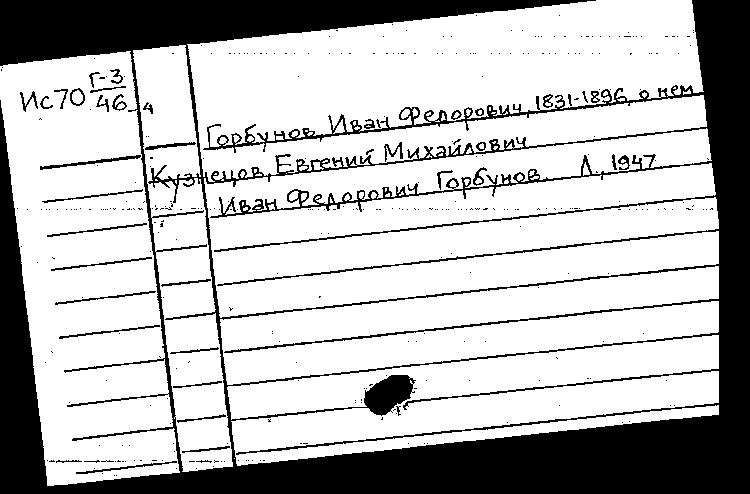 Ис70 Г-3
46-4
Горбунов, Иван Федорович, 1831-1896, о нем
Кузнецов, Евгений Михайлович
Иван Федорович Горбунов. Л., 1947